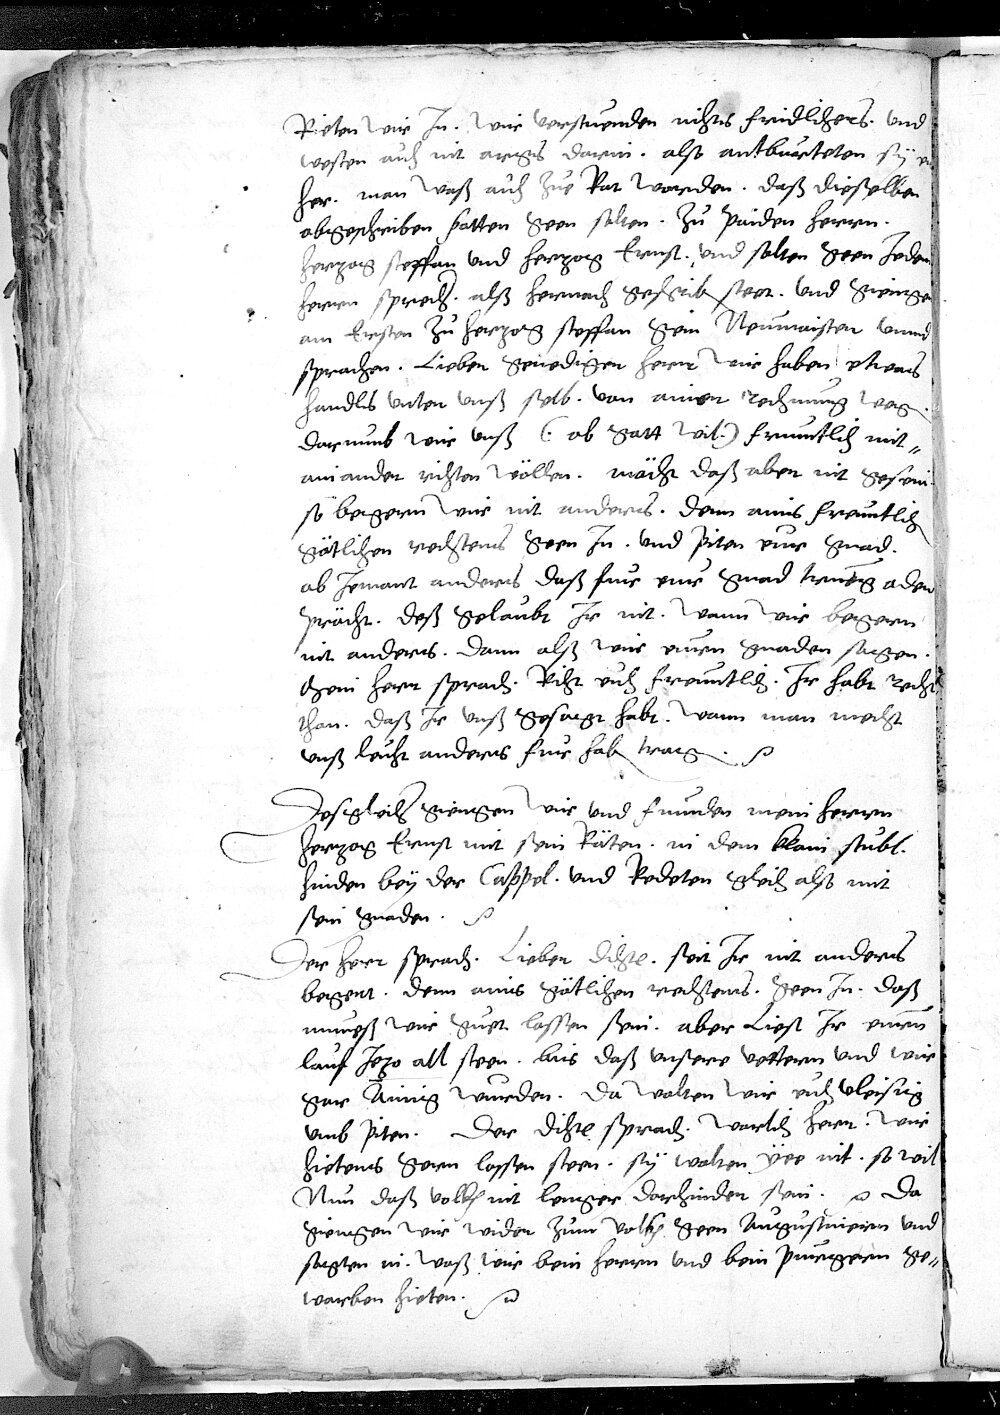 Rieten wir In. wir verstuenden nichts fridlichers. und
westen auch nit args darin. also antburteten sy
her. man waß auch zue Rat worden. daß dieselben
abgeschriben hatten geen solten. zu paiden herrn.
herzog steffan und herzog Ernst. und solten geen Jedem
herrn sprech. alß hernach geschrib steet. und giengen
am Ersten zu herzog steffan gein Neunuaister unnd
sprachen. Lieber genediger herr wir haben etwas
handls unter unß selb. von ainer rechnung weg.
darumb wir unß (: ob gott wil:) freuntlich mit-
ainander richten wöllen. möcht daß aber nit gesein.
so begern wir nit anders. denn ains freuntlich
götlichen rechtens geen In. und piten eur gnad.
ob Jemant anders daß fur eur gnad trueg oder
prächt. deß gelaubt Ir nit. wann wir begern
nit anders. dann alß wir euern gnaden sagen.
Mein herr sprach. Richt euch freuntlich. Ir habt recht
than. daß Ir unß gesagt habt. wann man mecht
unß leicht anders fur hab trag.
Desgleich giengen wir und funden mein herrn
herzog Ernst mit sein Räten. in dem klain stubl.
hinden bey der Cappel. und Redeten gleich also mit
sein gnaden.
Der herr sprach. Lieber dichtl. seit Ir nit anders
begert. denn ains götlichen rechtens. geen In. daß
mueß wir guet lassen sein. aber Liest Ir euern
lauf Jezo all steen. bis daß unsere vettern und wir
gar Ainig wurden. Da wolten wir euch vleisig
umb piten. Der dichtl sprach. warlich herr. wir
hietens gern lassen steen. sy wolten ye nit. so wil
Nun daß volkh nit lenger dorhinder sein. Da
giengen wir wider zum volkh geen Augustinern und
sagten in. waß wir bein herrn und bein purgern ge-
worben hieten.